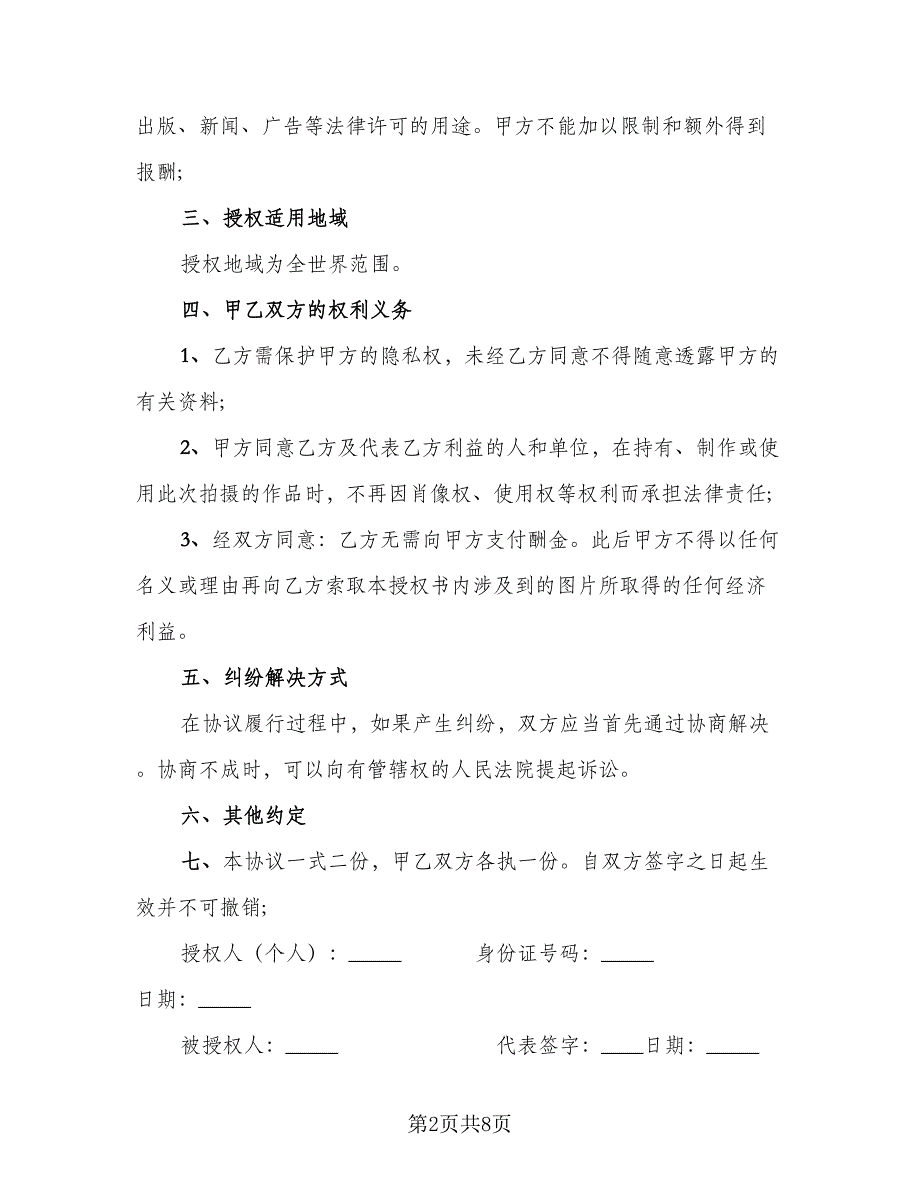 出版、新闻、广告等法律许可的用途。甲方不能加以限制和额外得到
报酬;
三、授权适用地域
授权地域为全世界范围。
四、甲乙双方的权利义务
1、乙方需保护甲方的隐私权，未经乙方同意不得随意透露甲方的
有关资料;
2、甲方同意乙方及代表乙方利益的人和单位，在持有、制作或使
用此次拍摄的作品时，不再因肖像权、使用权等权利而承担法律责任;
3、经双方同意：乙方无需向甲方支付酬金。此后甲方不得以任何
名义或理由再向乙方索取本授权书内涉及到的图片所取得的任何经济
利益。
五、纠纷解决方式
在协议履行过程中，如果产生纠纷，双方应当首先通过协商解决
。协商不成时，可以向有管辖权的人民法院提起诉讼。
六、其他约定
七、本协议一式二份，甲乙双方各执一份。自双方签字之日起生
效并不可撤销;
授权人（个人）：_____ 身份证号码：_____
日期：_____
被授权人：_____ 代表签字：____日期：_____
第2页共8页